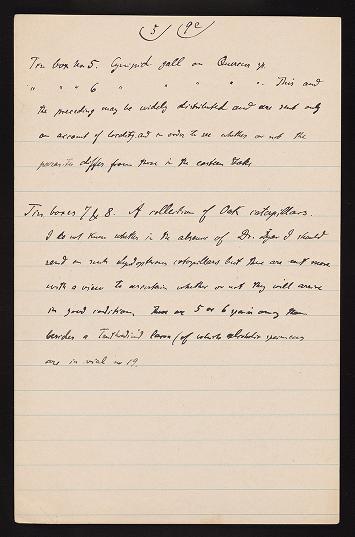 5 9c
Tin box No 5. Cynipid gall on Quercus sp.
" " " 6 " " " " ". This and
the preceding may be widely distributed and are sent only
on account of locality, and in order to see whether or not the
parasites differ from those in the eastern States
Tin boxes 7 & 8. A collection of Oak caterpillars.
I do not know whether in the absence of Dr. Dyar I should
send on such lepidopterous caterpillars but these are sent more
with a view to ascertain whether or not they will arrive
in good condition. There are 5 or 6 species among them
besides a Tenthredinid larva (of which alcoholic specimens
are in vial no 19.